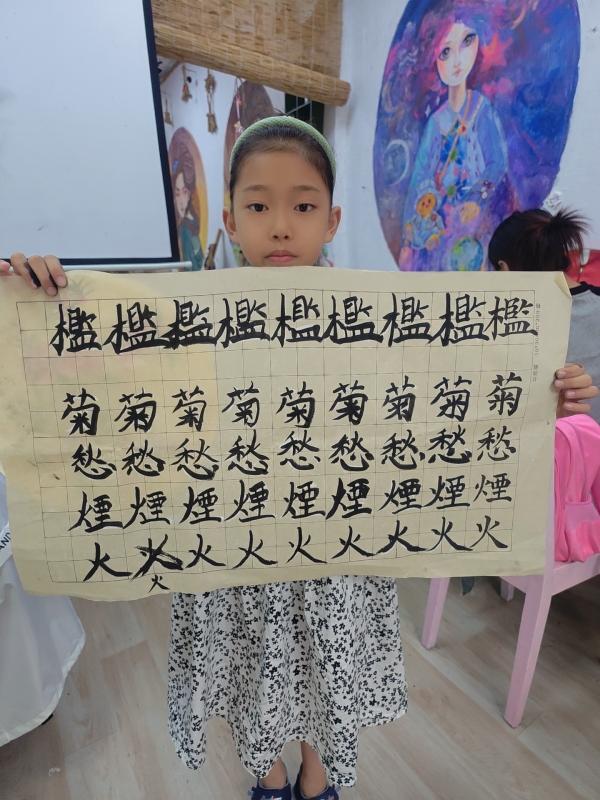 檻檻檻檻檻檻檻檻檻
菊菊菊菊菊菊菊菊菊
愁愁愁愁愁愁愁愁愁
煙煙煙煙煙煙煙煙煙
火火火火火火火火火
火